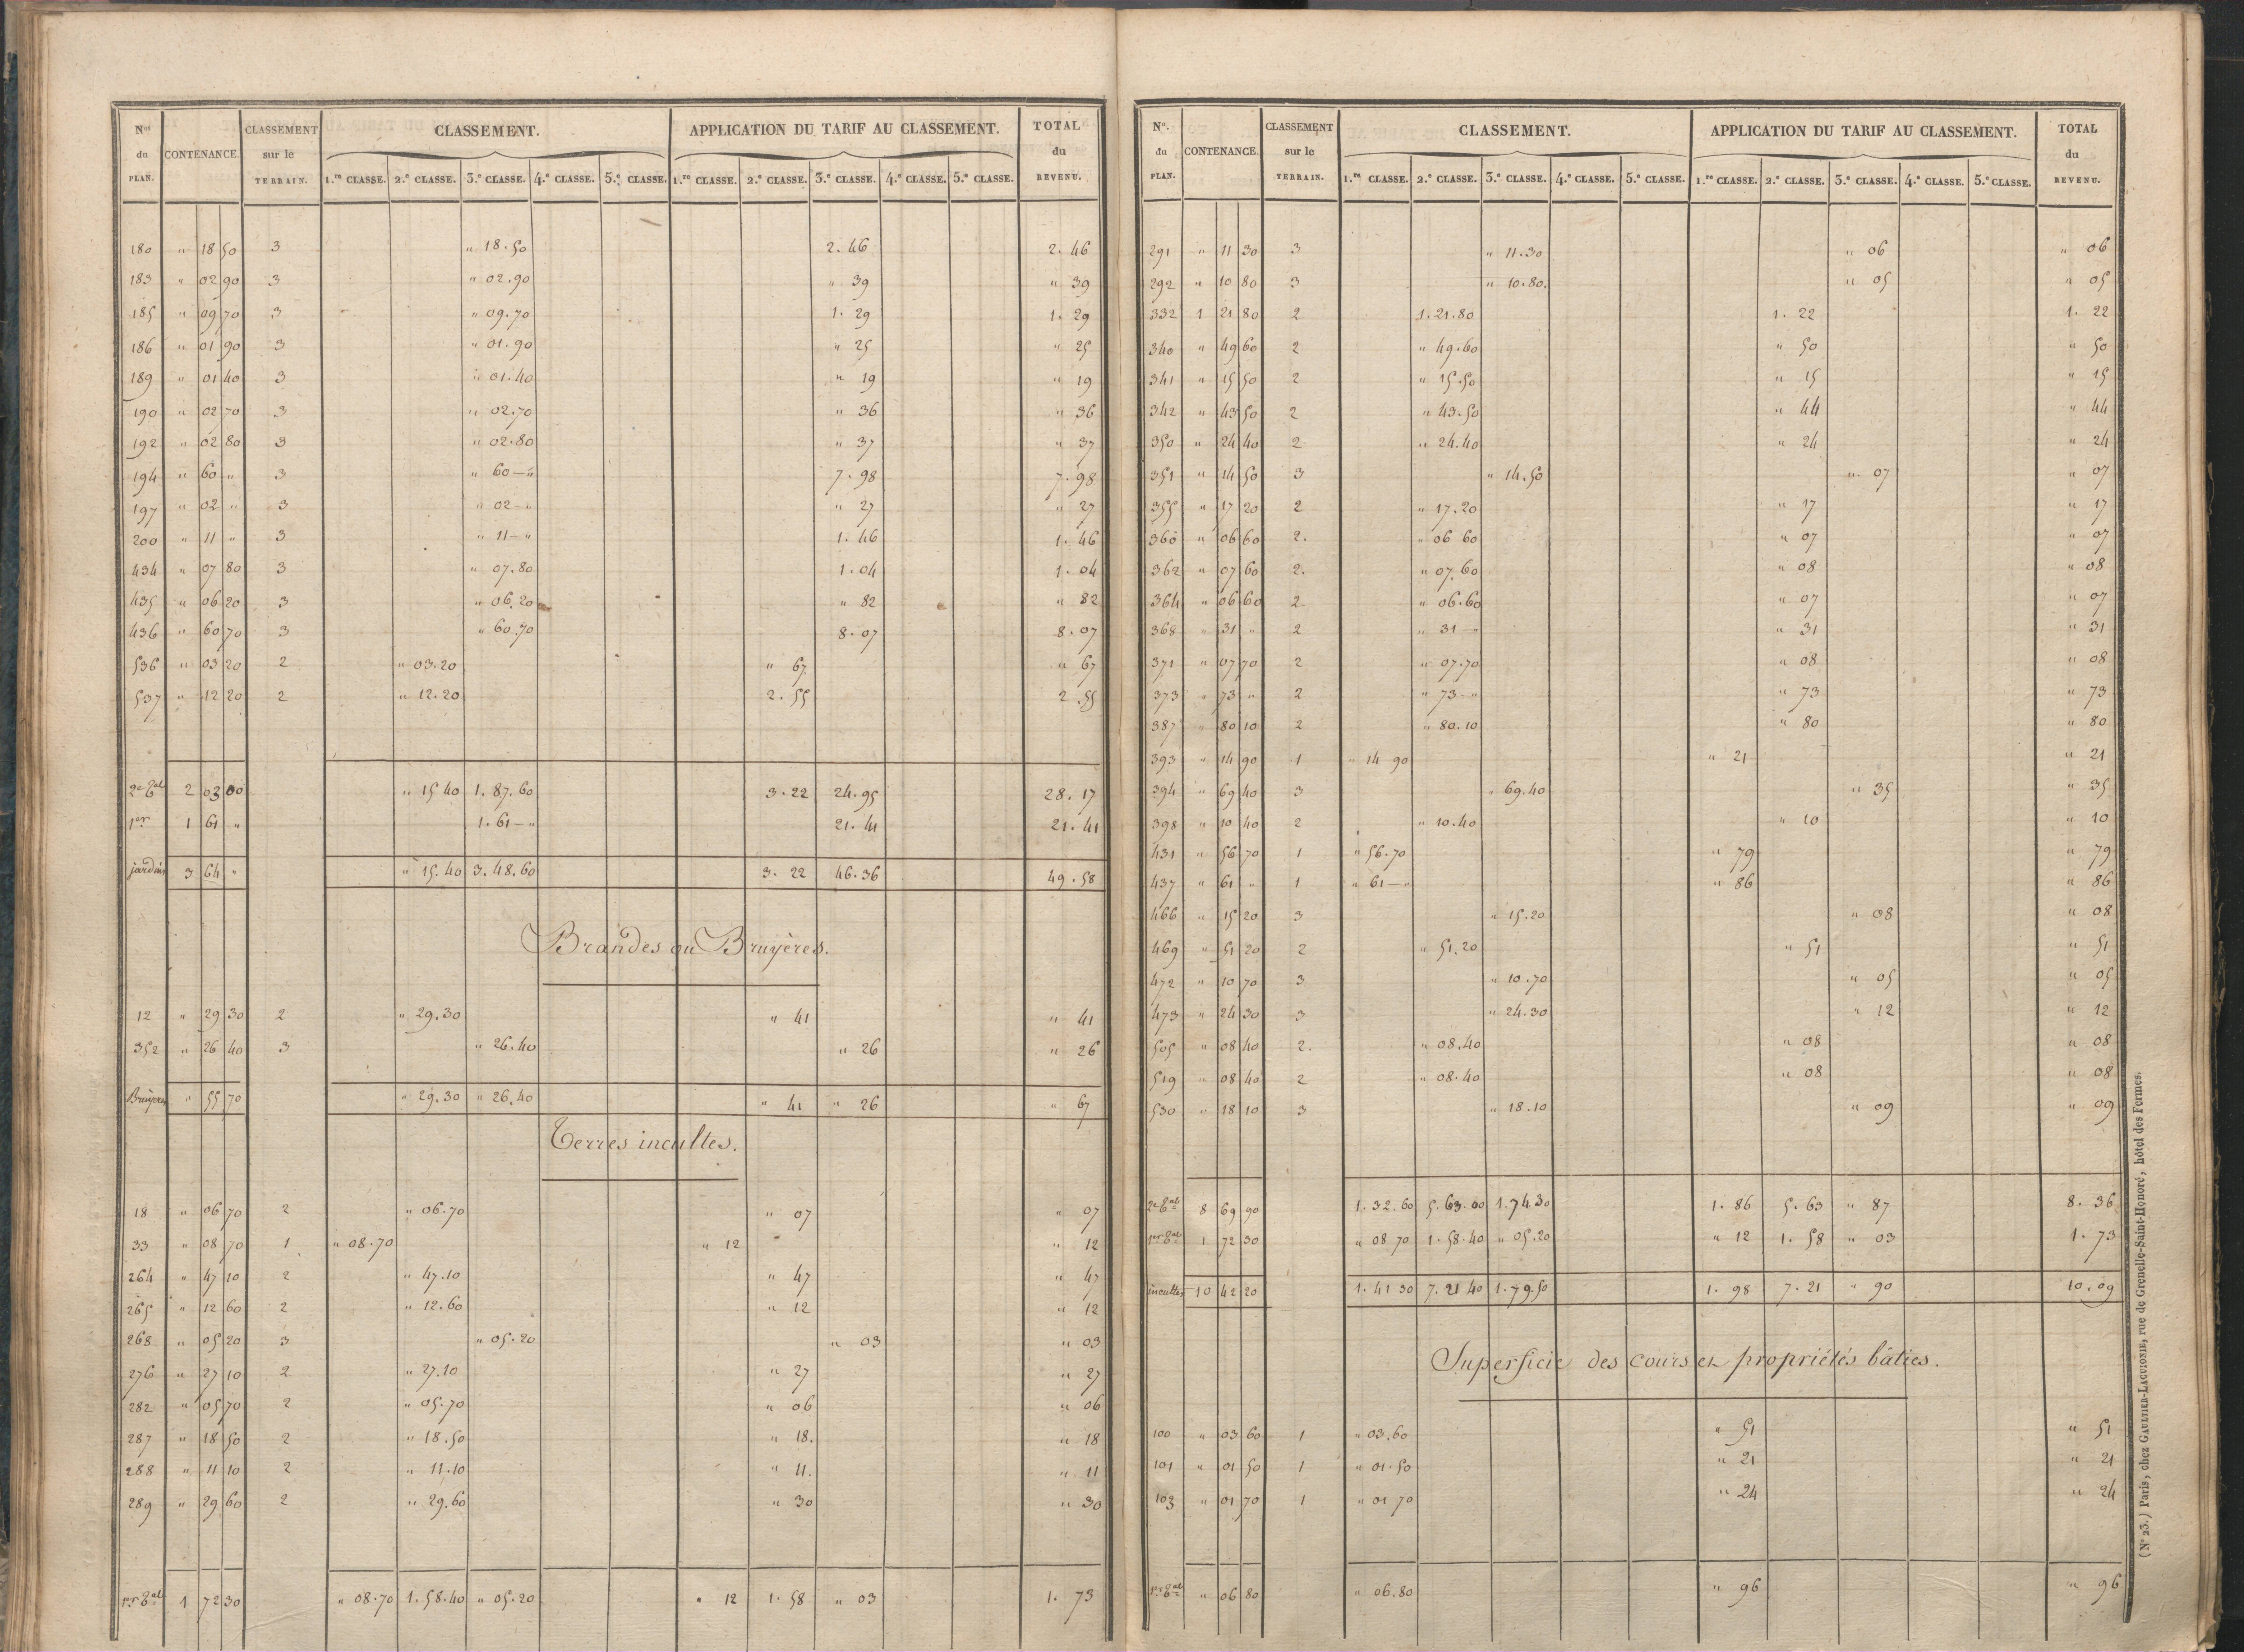 Nos du PLAN. CONTENANCE. CLASSEMENT sur le TERRAIN. CLASSEMENT. APPLICATION DU TARIF AU CLASSEMENT. TOTAL du REVENU.
1.re CLASSE. 2.e CLASSE. 3.e CLASSE. 4.e CLASSE. 5.e CLASSE. 1.re CLASSE. 2.e CLASSE. 3.e CLASSE. 4.e CLASSE. 5.e CLASSE.
180 " 18 50 3 " 18.50 2.46 2.46
183 " 02 90 3 " 02.90 " 39 " 39
185 " 09 70 3 " 09.70 1.29 1.29
186 " 01 90 3 " 01.90 " 25 " 25
189 " 01 40 3 " 01.40 " 19 " 19
190 " 02 70 3 " 02.70 " 36 " 36
192 " 02 80 3 " 02.80 " 37 " 37
194 " 60 " 3 " 60—" 7.98 7.98
197 " 02 " 3 " 02—" " 27 " 27
200 " 11 " 3 " 11—" 1.46 1.46
434 " 07 80 3 " 07.80 1.04 1.04
435 " 06 20 3 " 06.20 " 82 " 82
436 " 60 70 3 " 60.70 8.07 8.07
536 " 03 20 2 " 03.20 " 67 " 67
537 " 12 20 2 " 12.20 2.55 2.55
2e Tal 2 03 00 " 15 40 1.87.60 3.22 24.95 28.17
1er 1 61 " 1.61—" 21.41 21.41
jardins 3 64 " " 15.40 3.48.60 3.22 46.36 49.58
Brandes ou Bruyères.
12 " 29 30 2 " 29.30 " 41 " 41
352 " 26 40 3 " 26.40 " 26 " 26
Bruyères " 55 70 " 29.30 " 26.40 " 41 " 26 " 67
Terres incultes.
18 " 06 70 2 " 06.70 " 07 " 07
33 " 08 70 1 " 08.70 " 12 " 12
264 " 47 10 2 " 47.10 " 47 " 47
265 " 12 60 2 " 12.60 " 12 " 12
268 " 05 20 3 " 05.20 " 03 " 03
276 " 27 10 2 " 27.10 " 27 " 27
282 " 05 70 2 " 05.70 " 06 " 06
287 " 18 50 2 " 18.50 " 18. " 18
288 " 11 10 2 " 11.10 " 11. " 11
289 " 29 60 2 " 29.60 " 30 " 30
1er Tal 1 72 30 " 08.70 1.58.40 " 05.20 " 12 1.58 " 03 1.73
Nos du PLAN. CONTENANCE. CLASSEMENT sur le TERRAIN. CLASSEMENT. APPLICATION DU TARIF AU CLASSEMENT. TOTAL du REVENU.
1.re CLASSE. 2.e CLASSE. 3.e CLASSE. 4.e CLASSE. 5.e CLASSE. 1.re CLASSE. 2.e CLASSE. 3.e CLASSE. 4.e CLASSE. 5.e CLASSE.
291 " 11 30 3 " 11.30 " 06 " 06
292 " 10 80 3 " 10.80. " 05 " 05
332 1 21 80 2 1.21.80 1.22 1.22
340 " 49 60 2 " 49.60 " 50 " 50
341 " 15 50 2 " 15.50 " 15 " 15
342 " 43 50 2 " 43.50 " 44 " 44
350 " 24 40 2 " 24.40 " 24 " 24
351 " 14 50 3 " 14.50 " 07 " 07
355 " 17 20 2 " 17.20 " 17 " 17
360 " 06 60 2. " 06 60 " 07 " 07
362 " 07 60 2. " 07.60 " 08 " 08
364 " 06 60 2 " 06.60 " 07 " 07
368 " 31 " 2 " 31—" " 31 " 31
371 " 07 70 2 " 07.70 " 08 " 08
373 " 73 " 2 " 73—" " 73 " 73
387 " 80 10 2 " 80.10 " 80 " 80
393 " 14 90 1 " 14 90 " 21 " 21
394 " 69 40 3 " 69.40 " 35 " 35
398 " 10 40 2 " 10.40 " 10 " 10
431 " 56 70 1 " 56.70 " 79 " 79
437 " 61 " 1 " 61—" " 86 " 86
466 " 15 20 3 " 15.20 " 08 " 08
469 " 51 20 2 " 51.20 " 51 " 51
472 " 10 70 3 " 10.70 " 05 " 05
473 " 24 30 3 " 24.30 " 12 " 12
505 " 08 40 2. " 08.40 " 08 " 08
519 " 08 40 2 " 08.40 " 08 " 08
530 " 18 10 3 " 18.10 " 09 " 09
2e Tal 8 69 90 1.32.60 5.63.00 1.74 30 1.86 5.63 " 87 8.36
1er Tal 1 72 30 " 08 70 1.58.40 " 05.20 " 12 1.58 " 03 1.73
incultes 10 42 20 1.41 30 7.21 40 1.79.50 1.98 7.21 " 90 10.09
Superficie des cours et propriétés bâties.
100 " 03 60 1 " 03.60 " 51 " 51
101 " 01 50 1 " 01.50 " 21 " 21
103 " 01 70 1 " 01 70 " 24 " 24
1er Tal " 06 80 " 06.80 " 96 " 96
(N° 23.) Paris, chez GAULTIER-LAGUIONIE, rue de Grenelle-Saint-Honoré, hôtel des Fermes.